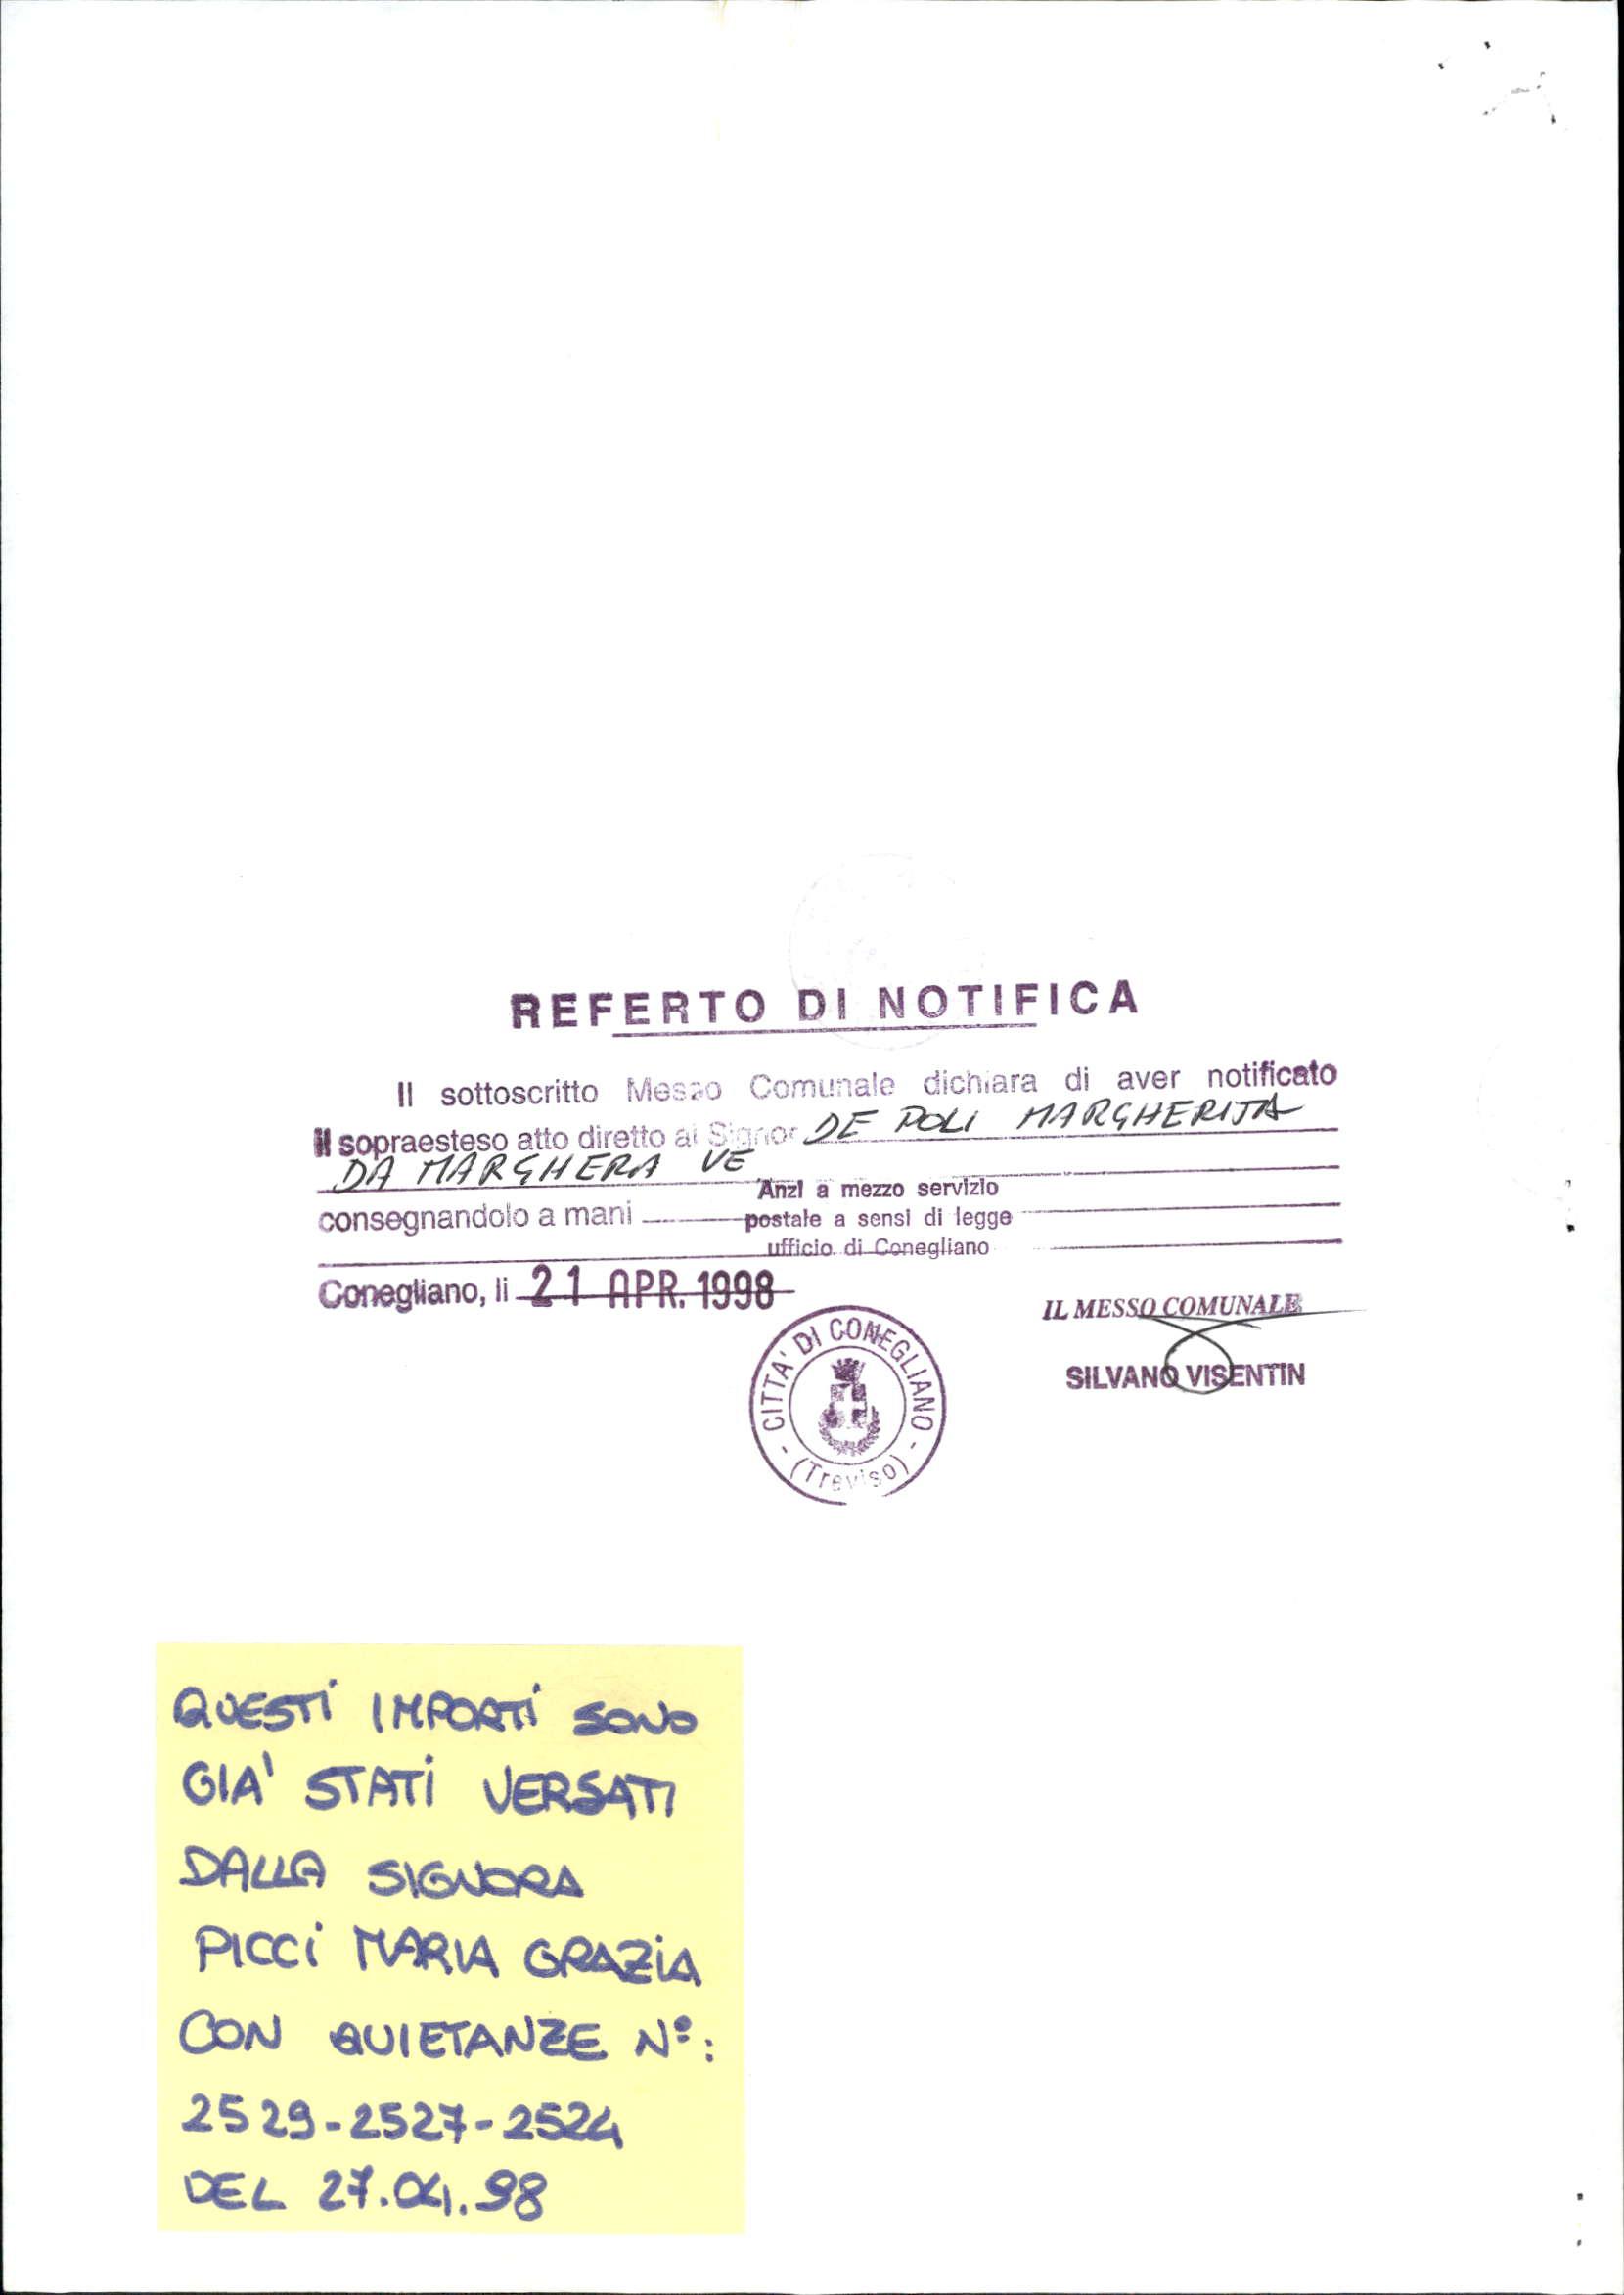 REFERTO DI NOTIFICA
Il sottoscritto Messo Comunale dichiara di aver notificato
il sopraesteso atto diretto al Signor DE POLI MARGHERITA
DA MARGHERA VE
Anzi a mezzo servizio
consegnandolo a mani postale a sensi di legge
ufficio di Conegliano
Conegliano, li 21 APR. 1998
IL MESSO COMUNALE
SILVANO VISENTIN
CITTA' DI CONEGLIANO
(Treviso)
QUESTI IMPORTI SONO
GIA' STATI VERSATI
DALLA SIGNORA
PICCI MARIA GRAZIA
CON QUIETANZE N°:
2529-2527-2524
DEL 27.04.98